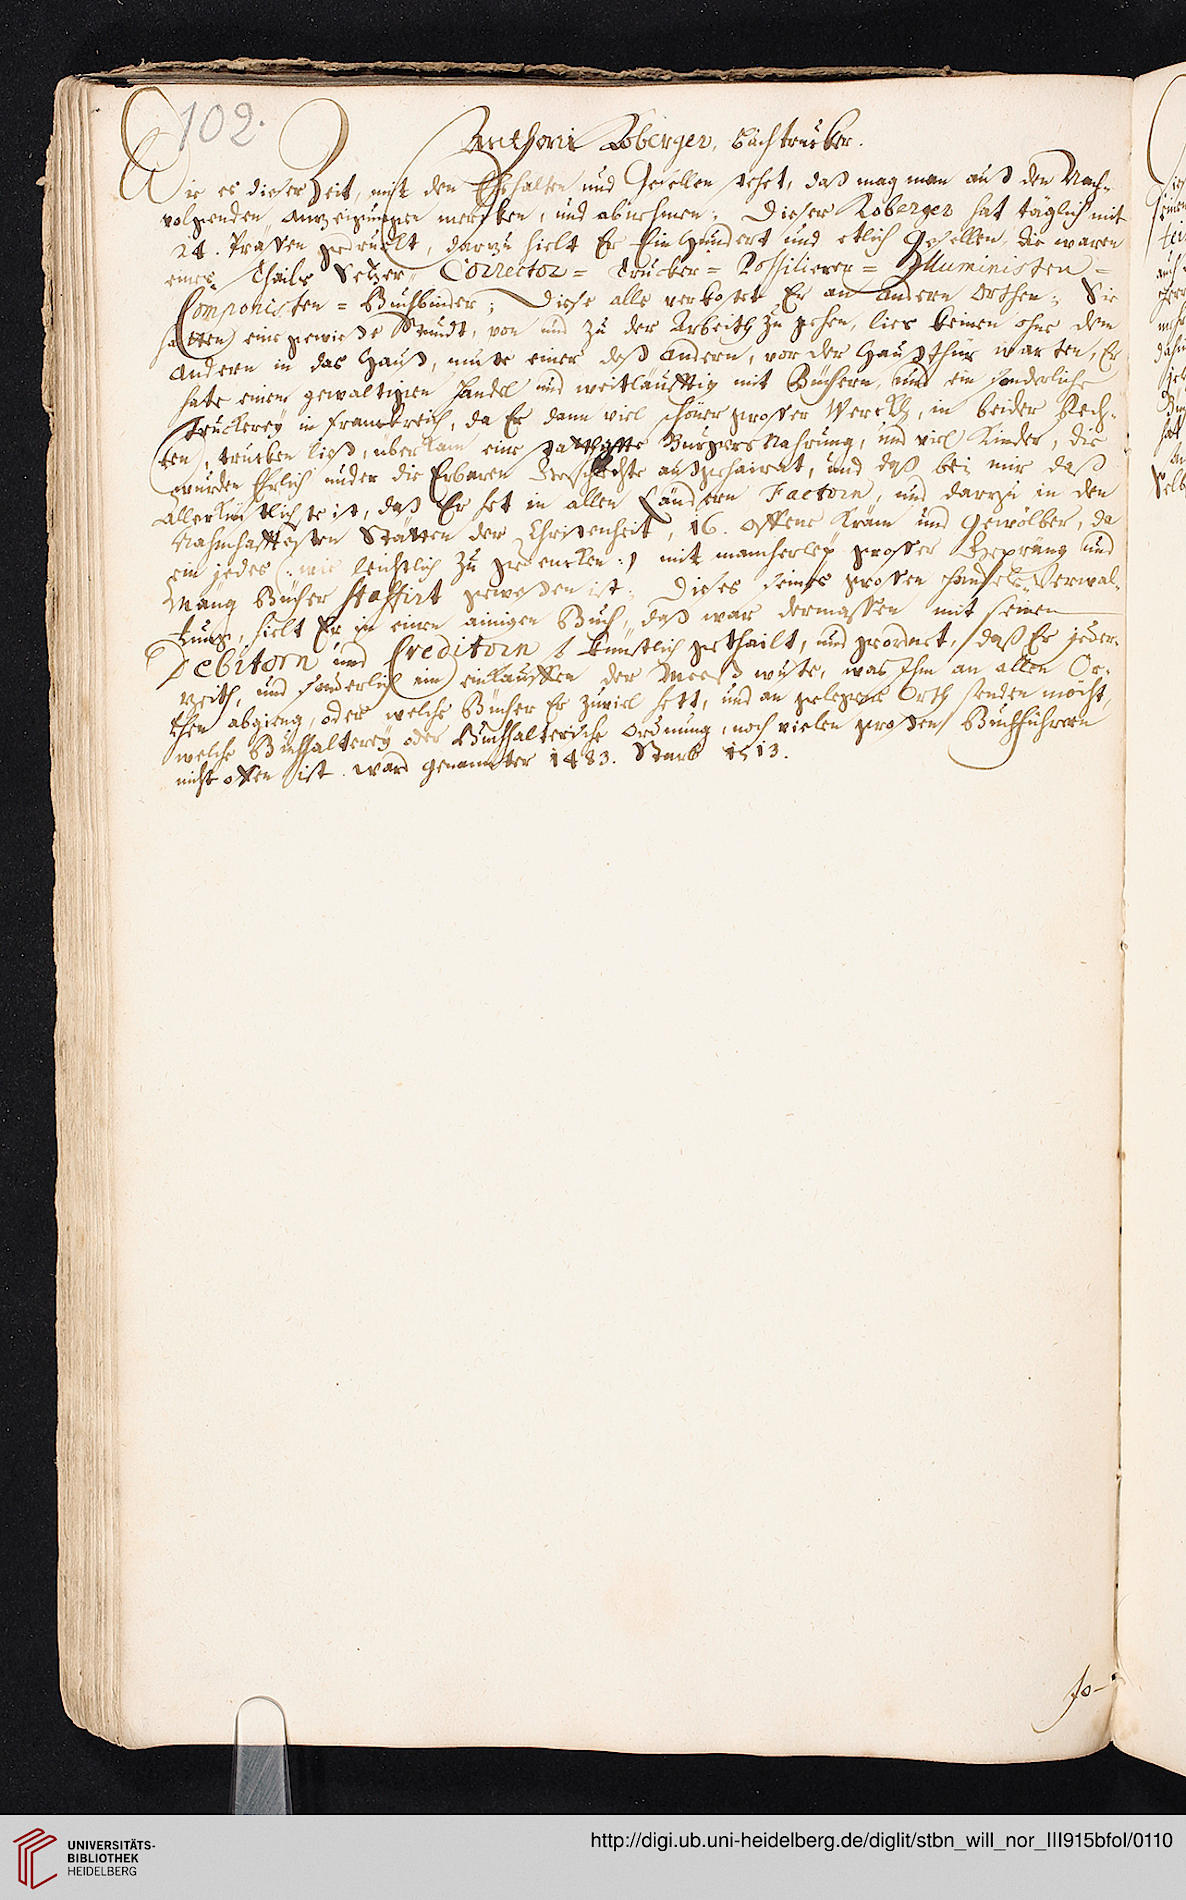 102.
Anthoni Koberger, Buchtrucker.
Wie es dieser Zeit, mit den Ehehalten und Gesellen stehet, daß mag man auß den Nach-
volgenden anzeigungen mercken, und abnehmen; Dieser Koberger hat täglich mit
24. Präßen gedruckt, darzu hielt Er Ein Hundert und etlich Gesellen, die waren
eines Thails Setzer, Corrector = Trucker = Possilierer = Illuministen =
Componisten = Buchbinder; Diese alle verkostet Er an Andern Orthen; Sie
hatten eine gewiese Stundt, von und zu der Arbeith zu gehen, lies keinen ohne dem
Andern in das Hauß, muste einer deß Andern, vor der Haußthür warten, Er
hate einen gewaltigen Handel und weitläufftig mit Büchern, und ein sonderliche
Truckerey in Franckreich, da Er dann viel schöner grosser Werckh, in beider Rech-
ten, trucken ließ, überkam eine statthaffte Burgers Nahrung, und viel Kinder, die
wurden Ehrlich under die Erbaren Geschlechte außgehairat, und daß bei mir daß
Allerkünstlichste ist, daß Er het in allen Ländern Factorn, und darzu in den
Nahmhafftesten Stätten der Christenheit, 16. offene Kräm und Gewölber, da
ein jedes (: wie leichtlich zu gedencken :) mit mancherley grosser Gepräng und
Mäng Bücher staffirt gewesen ist; Dieses seines grossen Handels Verwal-
tung, hielt Er in einen ainigen Buch, daß war dermassen mit seinen
Debitorn und Creditorn so künstlich gethailt, und geordnet, daß Er jeder-
zeith, und sonderlich im einkauffen der Meeß wuste, was Ihm an allen Or-
then abgieng, oder welche Bücher Er zuviel hett, und an gelegene Orth senden möcht,
welche Buchhalterey oder Buchhalterische Ordnung, noch vielen grossen Buchführern
nicht offen ist. ward genannter 1483. Starb 1513.
Jo-
UNIVERSITÄTS-
BIBLIOTHEK
HEIDELBERG
http://digi.ub.uni-heidelberg.de/diglit/stbn_will_nor_III915bfol/0110